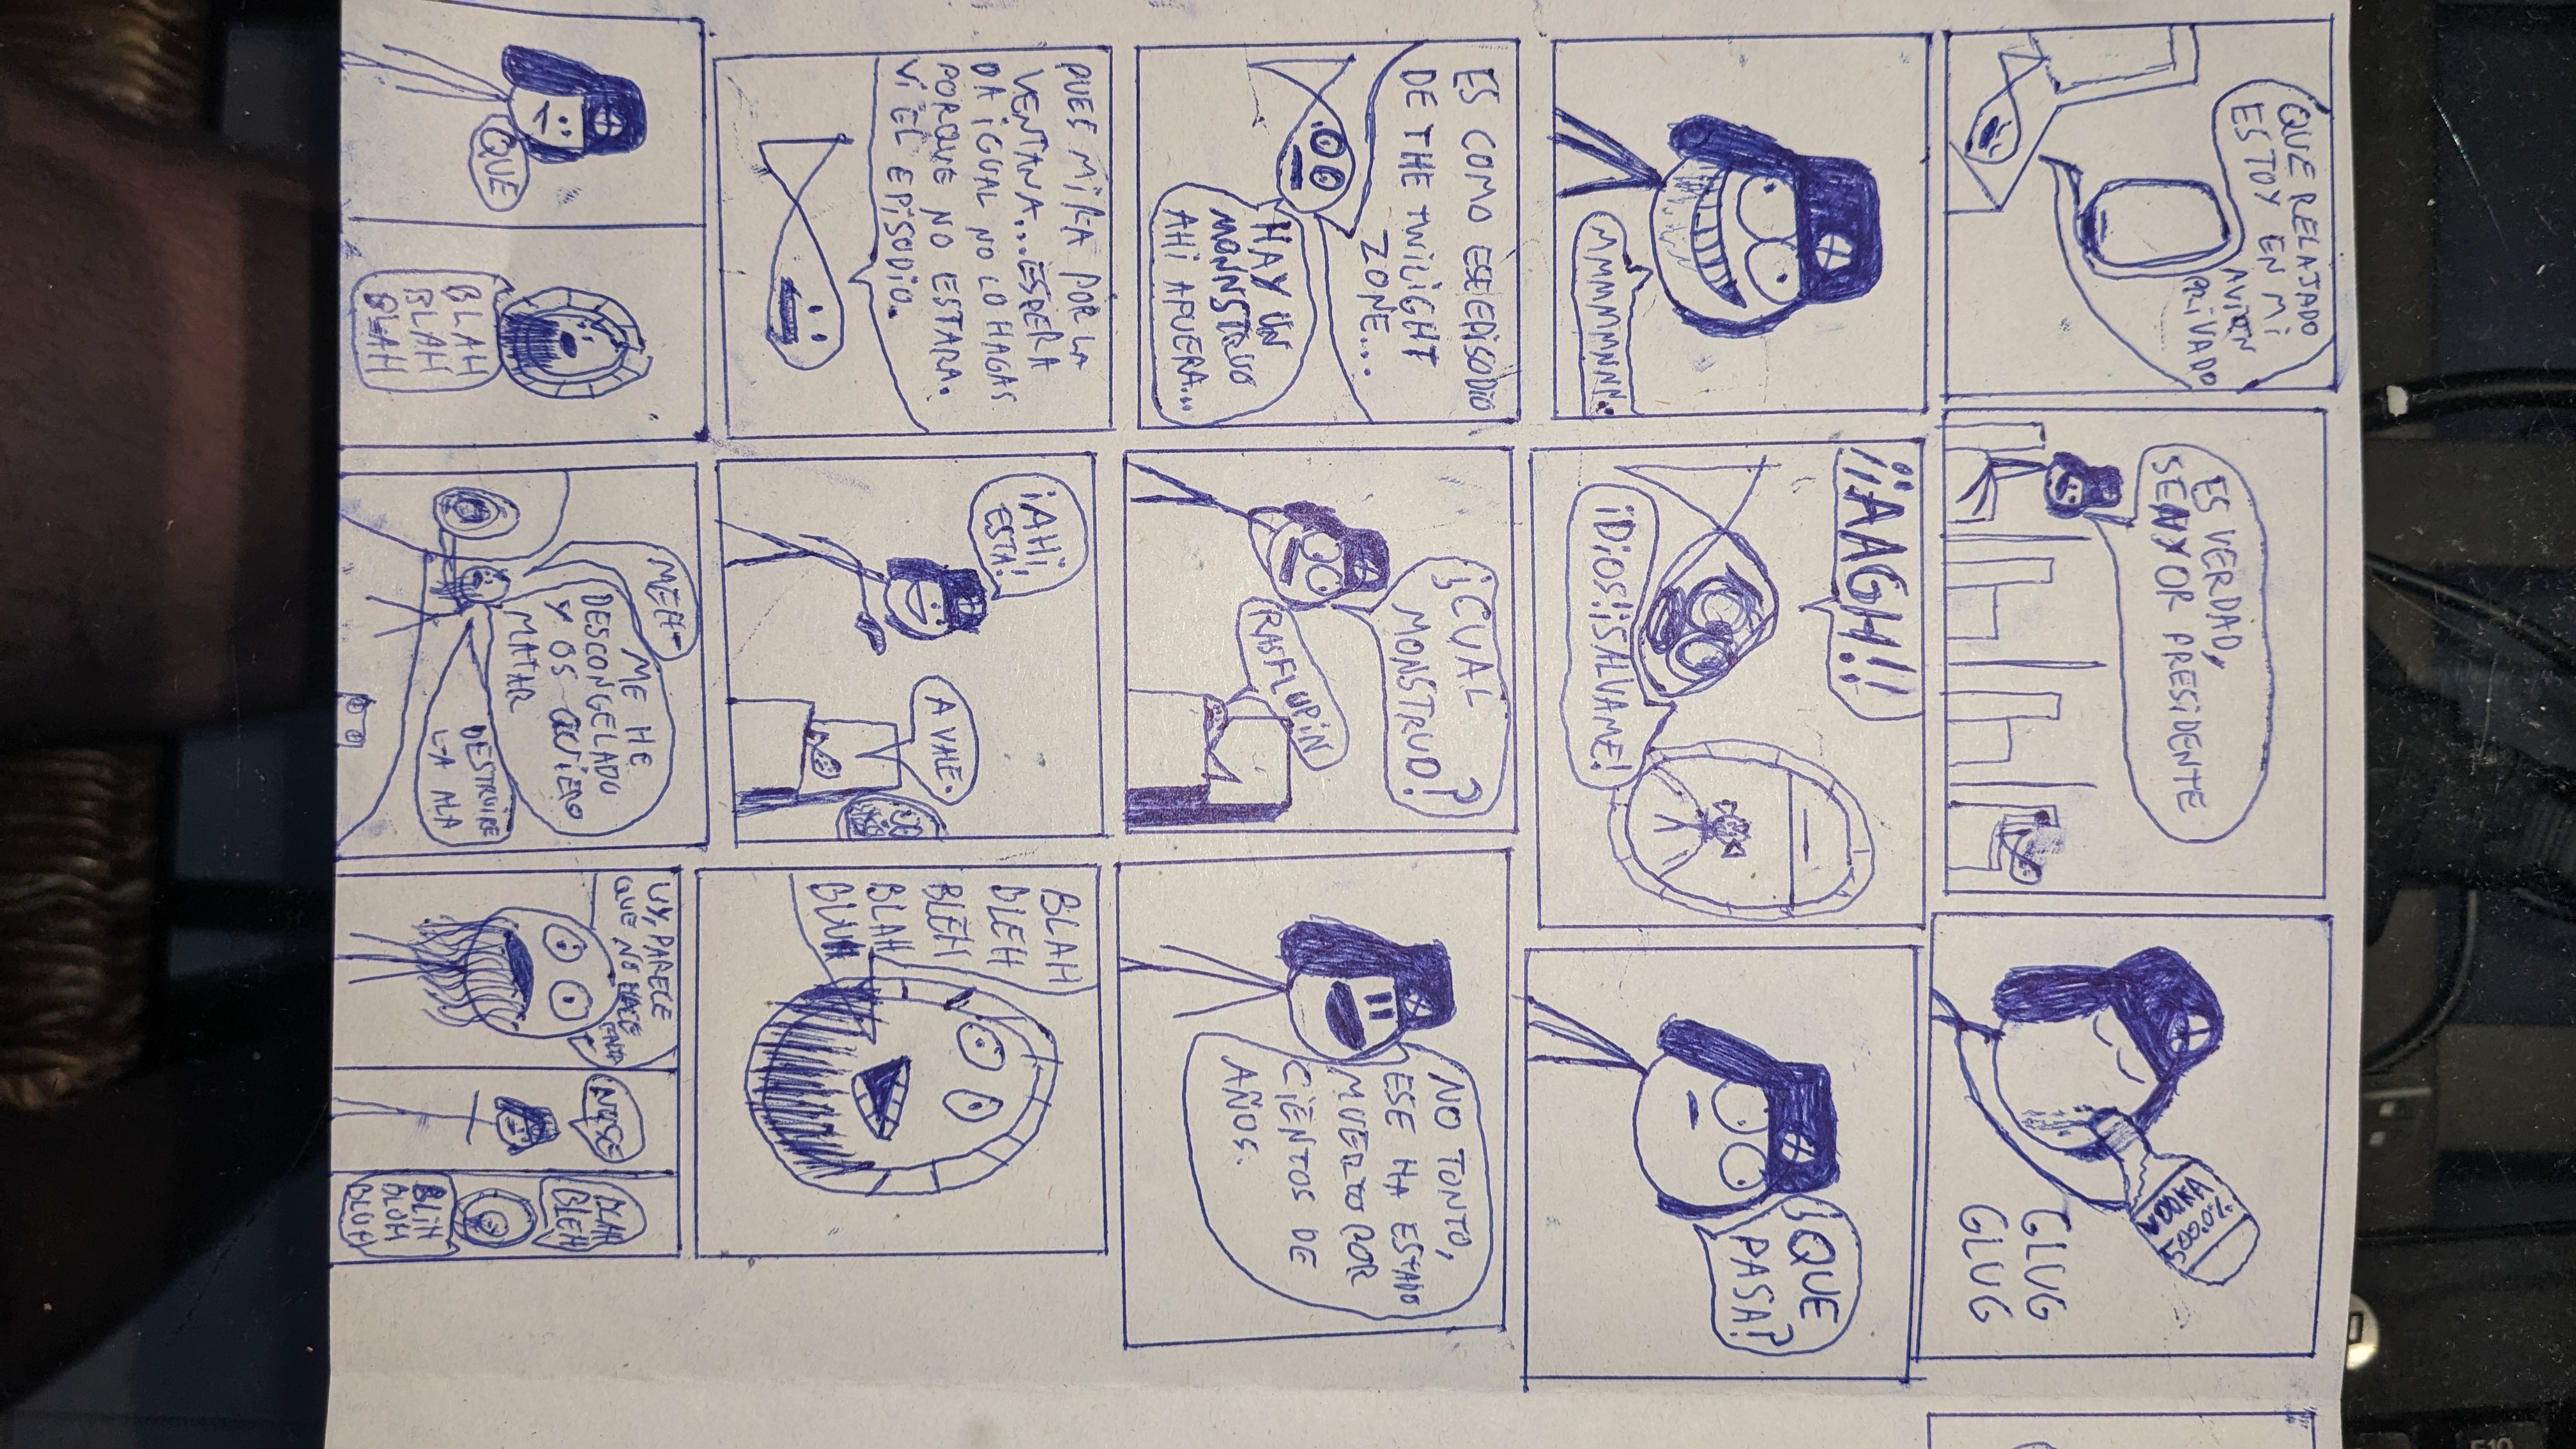 QUE RELAJADO
ESTOY EN MI
AVION
PRIVADO
ES VERDAD,
SENYOR PRESIDENTE
VODKA
500.0%
GLUG
GLUG
MMMMMNNN.
¡¡AAGH!!
¡DIOS!¡SALVAME!
¿QUE
PASA?
ES COMO ESE EPISODIO
DE THE TWILIGHT
ZONE...
HAY UN
MONNSTRUO
AHI AFUERA...
¿CUAL
MONSTRUO?
RASFLUPIN
NO TONTO,
ESE HA ESTADO
MUERTO POR
CIENTOS DE
AÑOS.
PUES MIRA POR LA
VENTANA...ESPERA
DA IGUAL NO LO HAGAS
PORQUE NO ESTARA.
VI EL EPISODIO.
¡AHI
ESTA!
A VALE.
BLAH
BLEH
BLEH
BLAH
BLUH
QUE
BLAH
BLAH
BLAH
MEH-
ME HE
DESCONGELADO
Y OS QUIERO
MATAR
DESTRUIRE
LA ALA
UY, PARECE
QUE NO HACE
FALTA
NOSE
BLAH
BLEH
BLIH
BLOH
BLUH